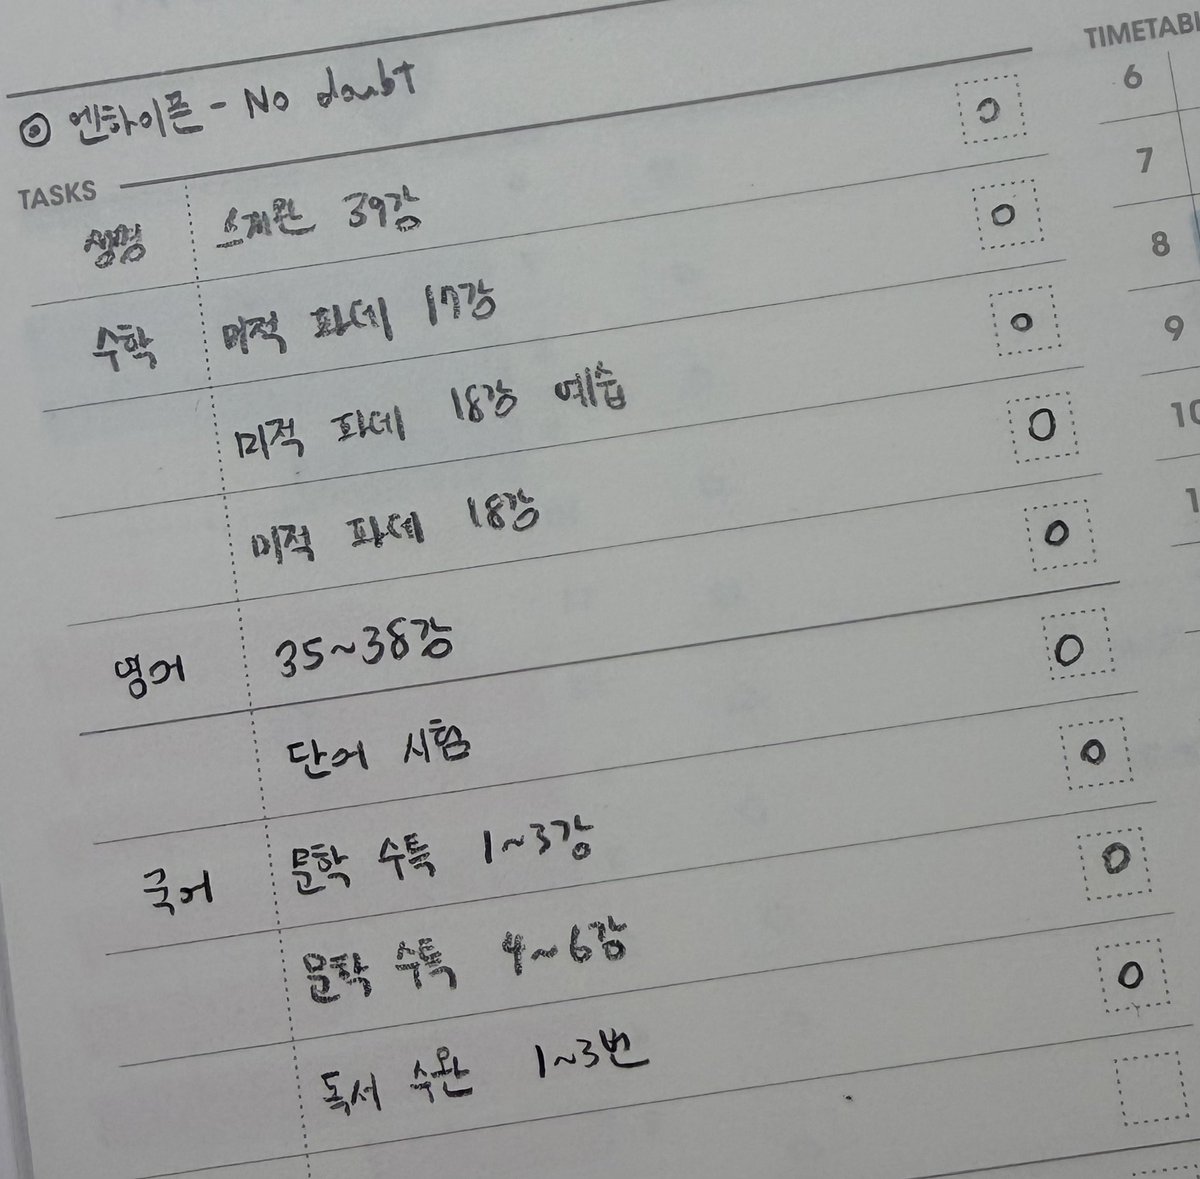 ◎ 엔하이픈 - No doubt
TIMETABL
TASKS
생명 스개완 39강
수학 미적 파데 17강
미적 파데 18강 예습
미적 파데 18강
영어 35~38강
단어 시험
국어 문학 수특 1~3강
문학 수특 4~6강
독서 수완 1~3번
6
7
8
9
10
1